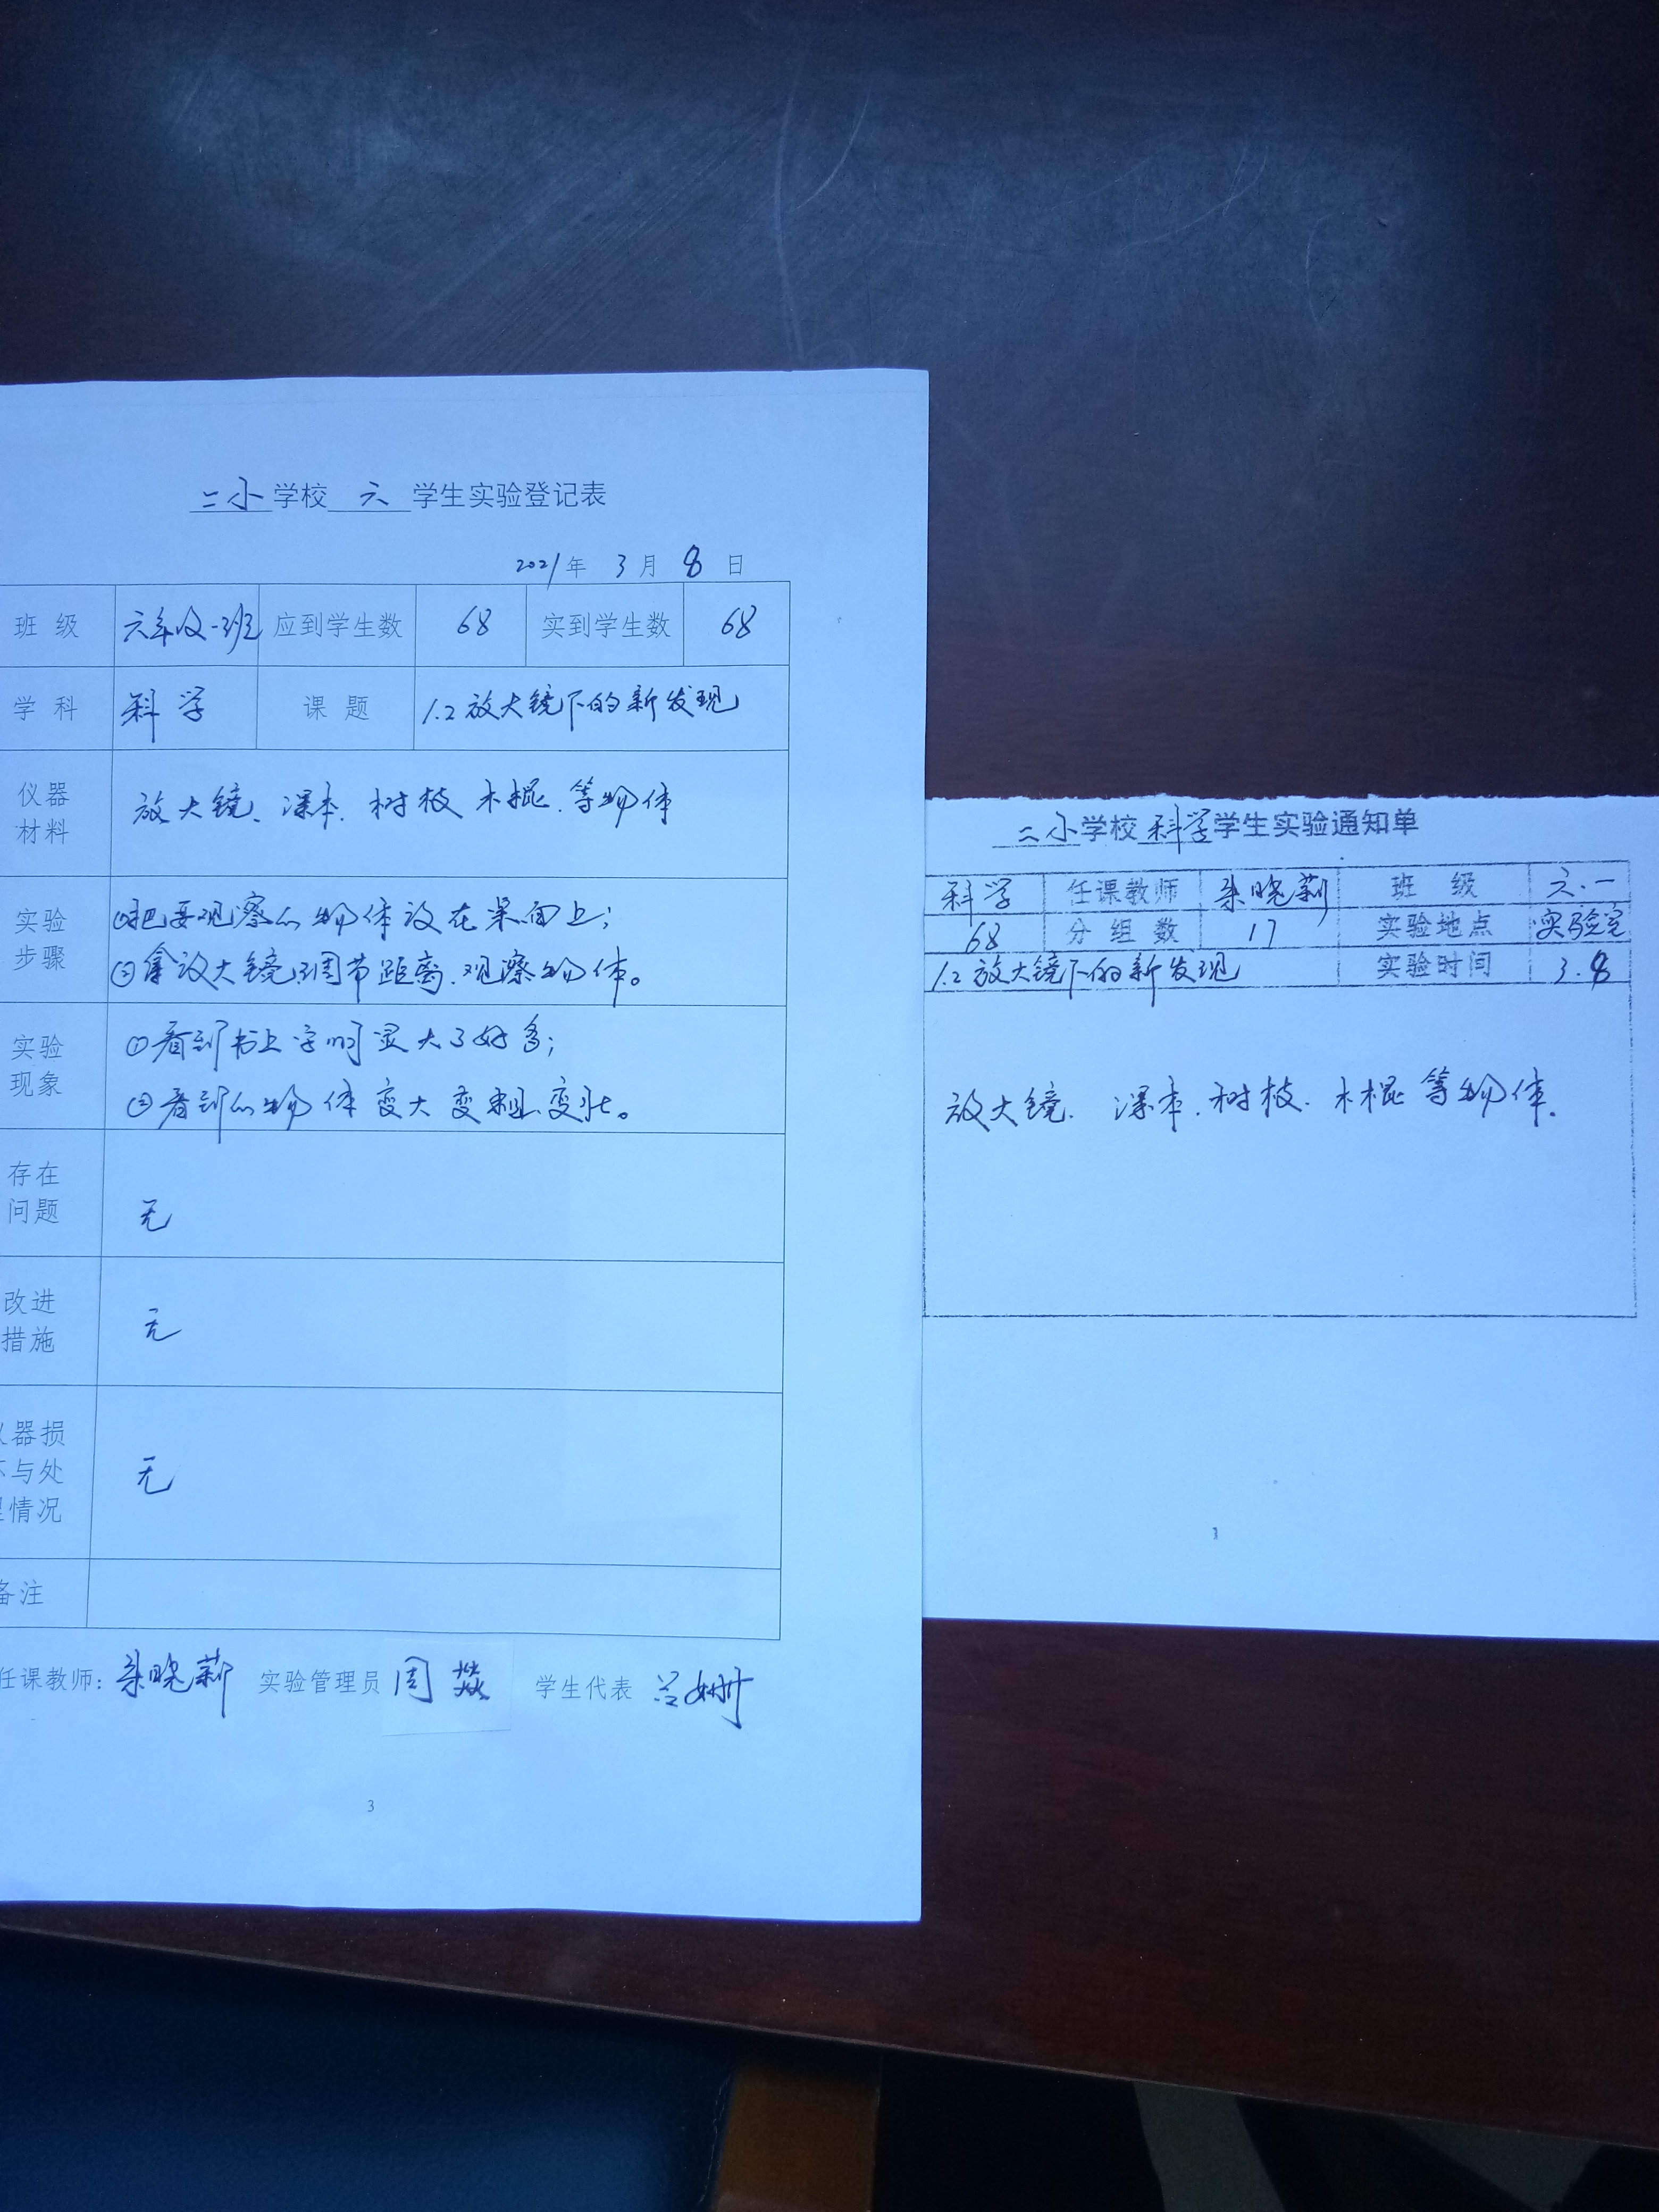 二小学校 六 学生实验登记表
2021年 3月 8日
班 级 六年级一班 应到学生数 68 实到学生数 68
学 科 科学 课 题 1.2放大镜下的新发现
仪器
材料
放大镜、课本、树枝 木棍、等物体
实验
步骤
①把要观察的物体放在桌面上;
②拿放大镜,调节距离.观察物体。
实验
现象
①看到书上字明显大了好多;
②看到的物体变大变粗变壮。
存在
问题
无
改进
措施
无
仪器损
坏与处
理情况
无
备注
任课教师: 晓莉 实验管理员 周 学生代表
3
二小学校科学学生实验通知单
科学 任课教师 晓莉 班 级 六.一
68 分 组 数 17 实验地点 实验室
1.2放大镜下的新发现 实验时间 3.8
放大镜. 课本.树枝.木棍等物体.
1